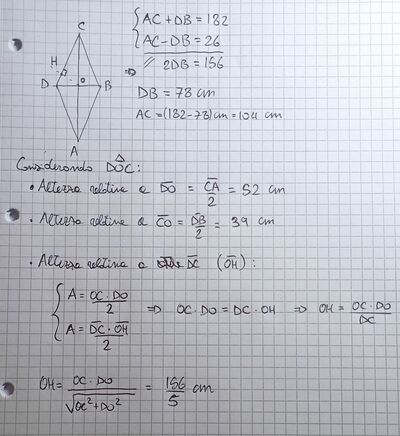 C
H
D
O
B
A
{ AC + DB = 182
AC - DB = 26
// 2DB = 156
⇒ DB = 78 cm
AC = (182 - 78) cm = 104 cm
Considerando DÔC:
• Altezza relativa a DO = CA/2 = 52 cm
• Altezza relativa a CO = DB/2 = 39 cm
• Altezza relativa a DC (OH):
{ A = OC · DO / 2
A = DC · OH / 2
⇒ OC · DO = DC · OH ⇒ OH = OC · DO / DC
OH = OC · DO / √(OC² + DO²) = 156/5 cm